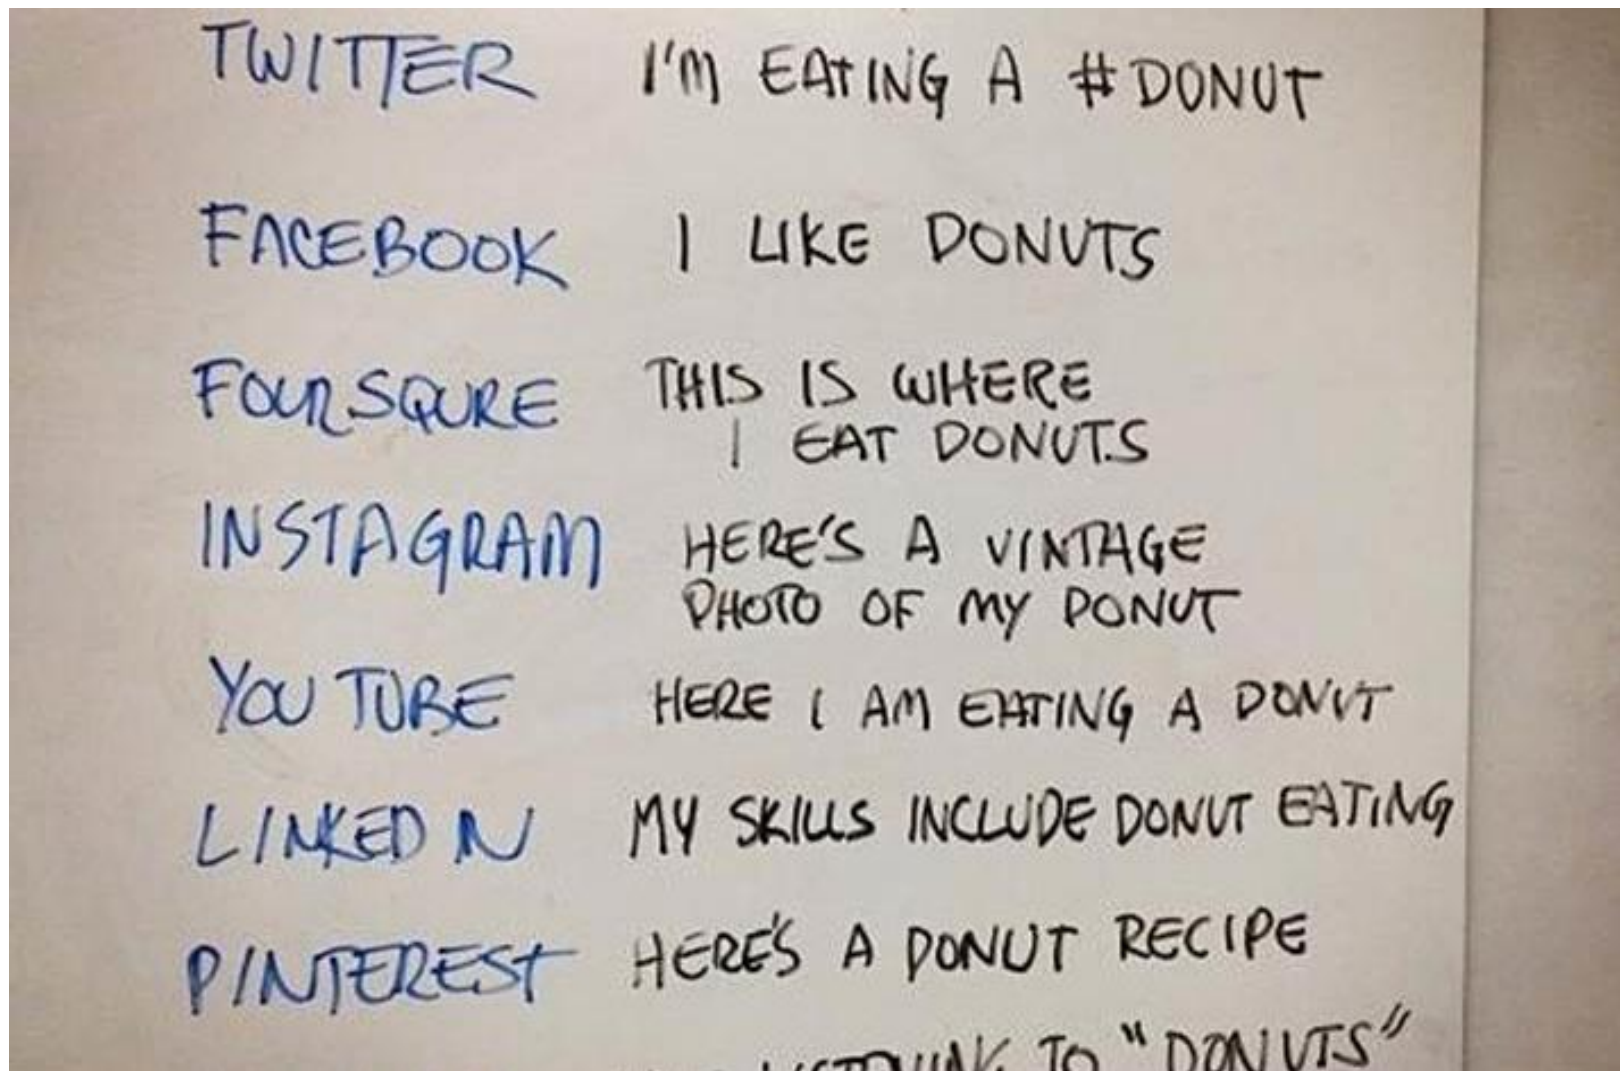 TWITTER I'M EATING A #DONUT
FACEBOOK I LIKE DONUTS
FOURSQURE THIS IS WHERE
I EAT DONUTS
INSTAGRAM HERE'S A VINTAGE
PHOTO OF MY DONUT
YOU TUBE HERE I AM EATING A DONUT
LINKED IN MY SKILLS INCLUDE DONUT EATING
PINTEREST HERE'S A DONUT RECIPE
LISTENING TO "DONUTS"